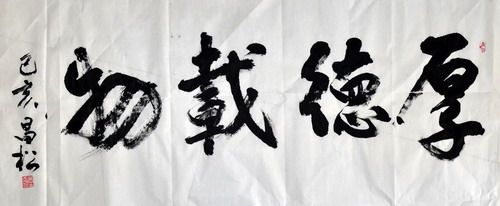 厚德載物
己亥昌松